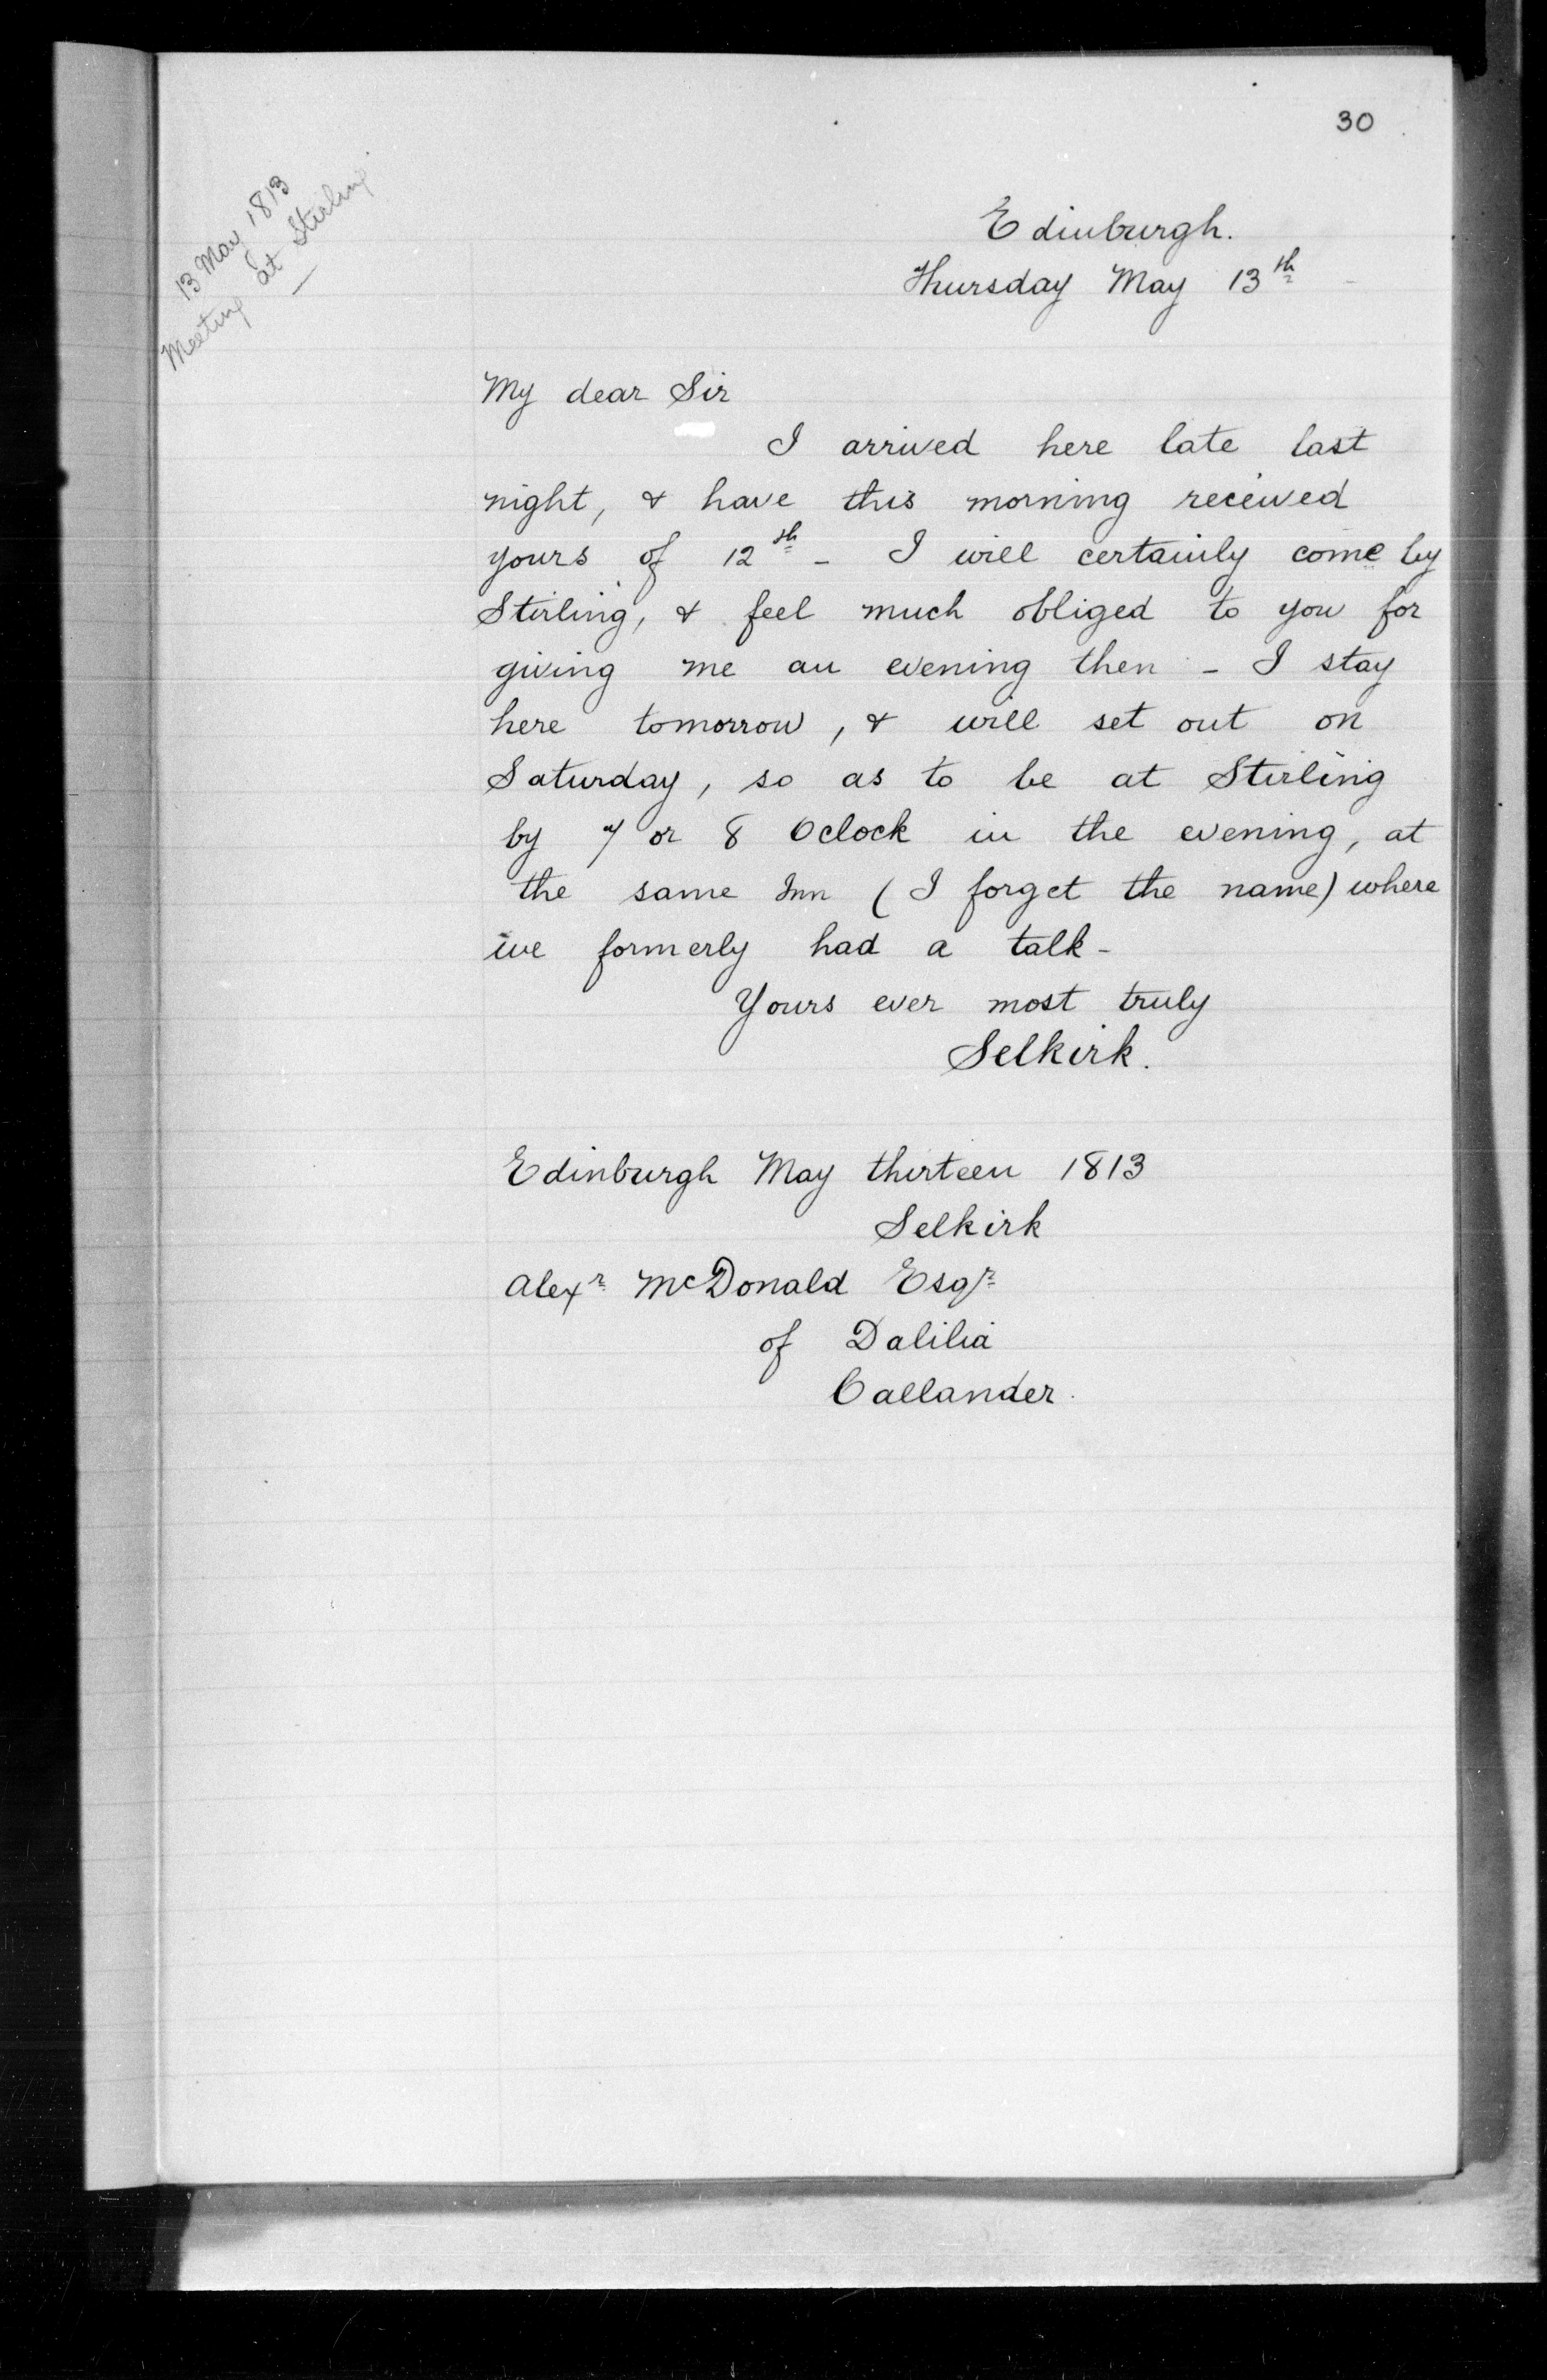 30
13 May 1813
Meeting at Stirling
Edinburgh.
Thursday May 13th
My dear Sir
I arrived here late last
night, & have this morning received
yours of 12th - I will certainly come by
Stirling, & feel much obliged to you for
giving me an evening then - I stay
here tomorrow, & will set out on
Saturday, so as to be at Stirling
by 7 or 8 Oclock in the evening, at
the same Inn (I forget the name) where
we formerly had a talk -
Yours ever most truly
Selkirk.
Edinburgh May thirteen 1813
Selkirk
Alexr McDonald Esqr
of Dalilia
Callander.